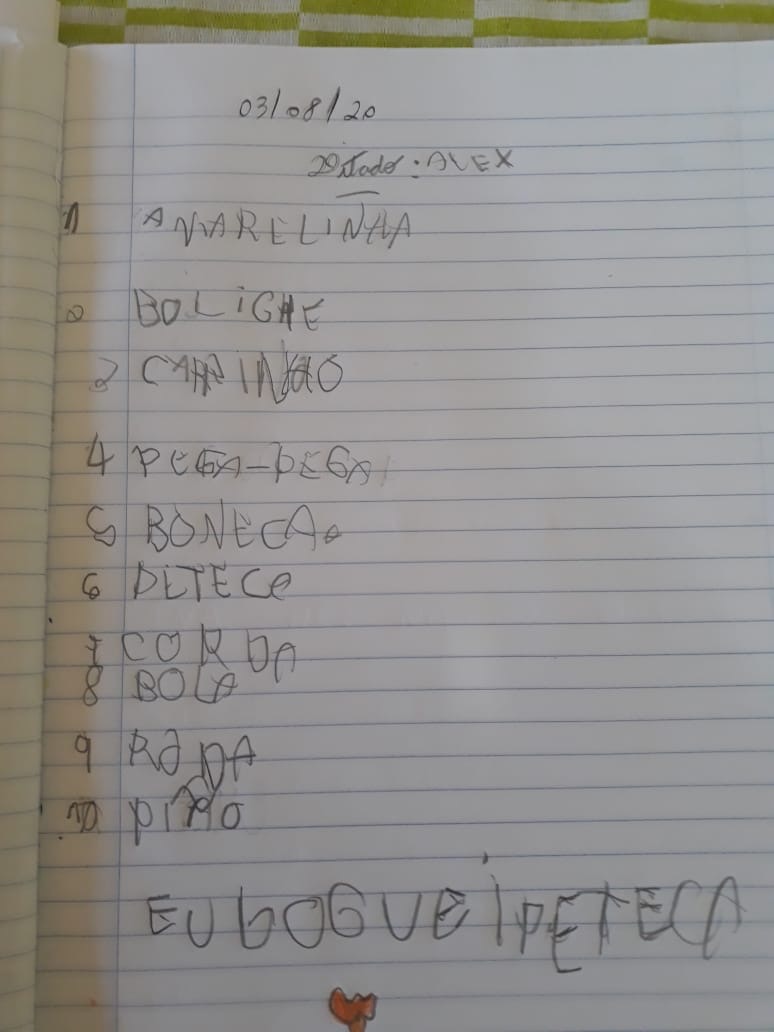 03/08/20
Ditado: ALEX
1 AMARELINHA
2 BOLICHE
3 CARRINHO
4 PEGA-PEGA
5 BONECA
6 PETECA
7 CORDA
8 BOLA
9 RODA
10 PIÃO
EU JOGUEI PETECA